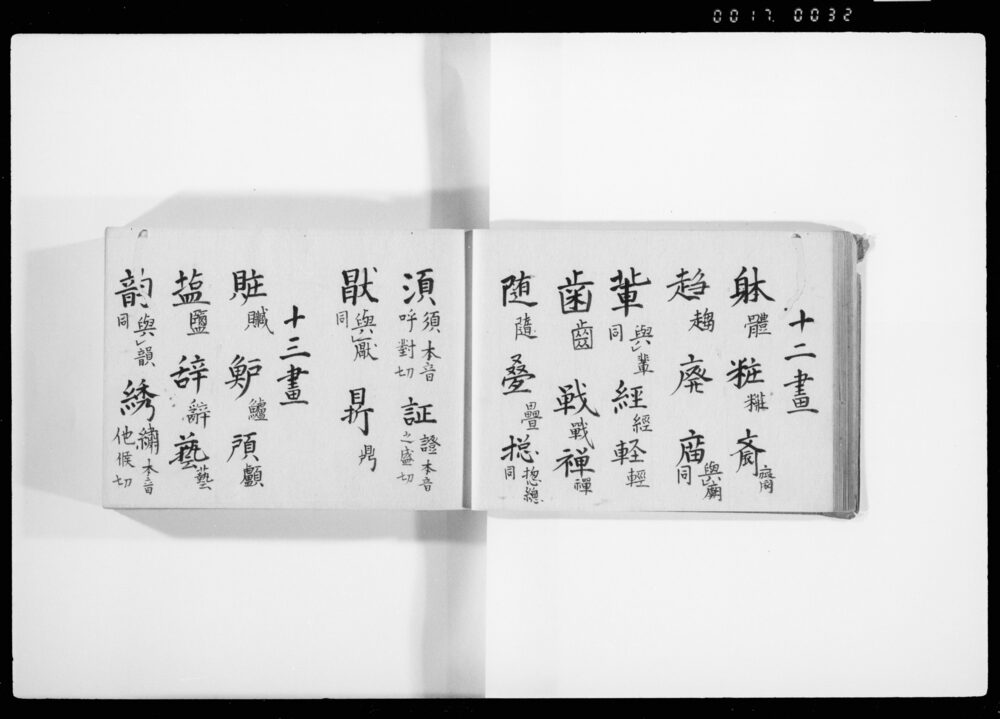 0017 0032
十二畫
躰 體 粧 糚 斋 齋
趋 趨 廃 廢 庿 與廟同
軰 與輩同 経 經 軽 輕
歯 齒 戦 戰 禅 禪
随 隨 叠 疊 捴 揔總同
湏 須本音呼對切 証 證本音之盛切
猒 與厭同 鼎
十三畫
賍 贓 鲈 鱸 顱
塩 鹽 辞 辭 藝 藝
韵 與韻同 綉 繡本音他候切